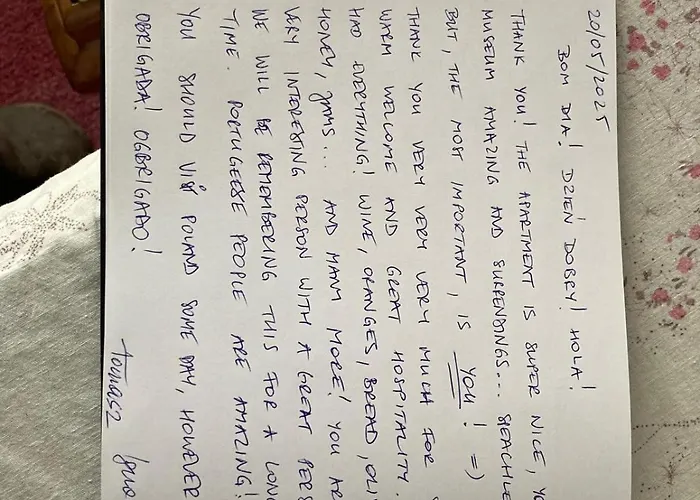 20/05/2025
BOM DIA! DZIEŃ DOBRY! HOLA!
THANK YOU! THE APARTMENT IS SUPER NICE,
MUSEUM AMAZING AND SURRENDINGS...
BUT, THE MOST IMPORTANT, IS YOU! =)
THANK YOU VERY VERY VERY MUCH FOR
WARM WELCOME AND GREAT HOSPITALITY.
HAD EVERYTHING! WINE, ORANGES, BREAD,
HONEY, JAMS... AND MANY MORE! YOU
VERY INTERESTING PERSON WITH A GREAT
WE WILL BE REMEMBERING THIS FOR A
TIME. PORTUGEESE PEOPLE ARE AMAZING!
YOU SHOULD VISIT POLAND SOME DAY, HOWEVER
OBRIGADA! OGBRIGADO!
Tomasz